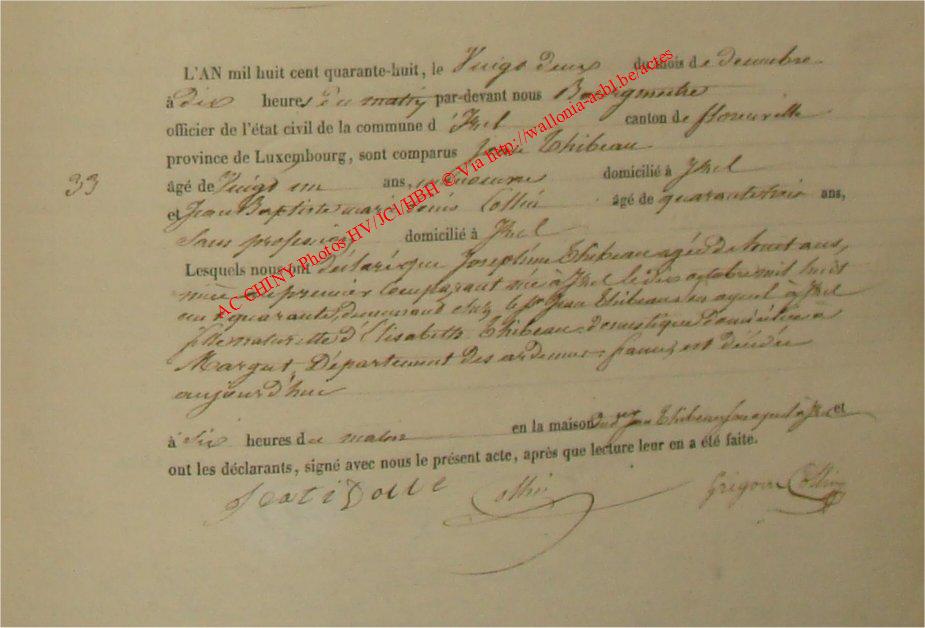 L'AN mil huit cent quarante-huit, le Vuigt deux du mois de decembre
à dix heures du matin par-devant nous Bourgmestre
officier de l'état civil de la commune d'Izel canton de florenville
province de Luxembourg, sont comparus Thibeau
33
âgé de Vuigt un ans, domicilié à Izel
et Jean Baptiste marie Collin âgé de quarante trois ans,
Sans profession domicilié à Izel
Lesquels nous ont déclaré que Josephine Thibeau agée de huit ans,
nièce du premier Comparant née à Izel le dix octobre mil huit
cent quarante, demeurand chez le Sr Jean Thibeau son ayeul à Izel
fille naturelle d'Elisabeth Thibeau domestique domiciliée à
Margut, Département des ardennes france, est décédée
aujourd'hui
à Six heures du matin en la maison dud. Jean Thibeau son ayeul à Izel et
ont les déclarants, signé avec nous le présent acte, après que lecture leur en a été faite.
Collin Grégoire Collin
AC CHINY Photos HV/JCI/HBH © Via http://wallonia-asbl.be/actes